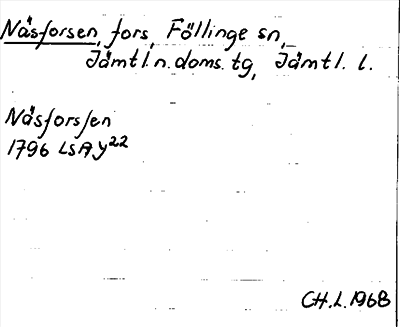 Näsforsen, fors, Föllinge sn,
Jämtl.n.doms.tg, Jämtl. l.
Näsforsen
1796 LSA y²²
CH.L.1968